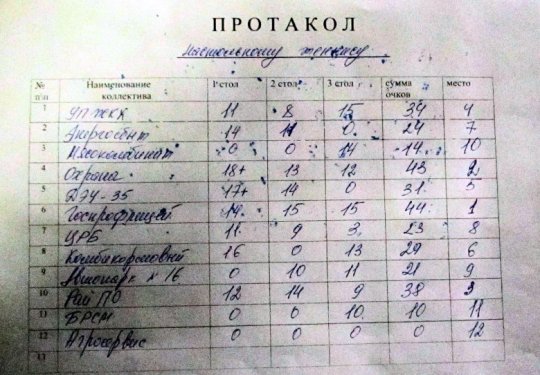 ПРОТАКОЛ
Настольному теннису
№ п\п Наименование коллектива 1 стол 2 стол 3 стол сумма очков место
1 УП ЖКХ 11 8 15 34 4
2 Энергосбыт 14 0 24 7
3 Мясокомбинат 0 0 14 14 10
4 Охрана 18+ 13 12 43 2
5 ДЭУ-35 17+ 14 0 31 5
6 14 15 15 44 1
7 ЦРБ 11 9 3 23 8
8 Комбикормовый 16 0 13 29 6
9 Автопарк №16 0 10 11 21 9
10 Рай ПО 12 14 9 38 3
11 БРСМ 0 0 10 10 11
12 Агросервис 0 0 0 0 12
13